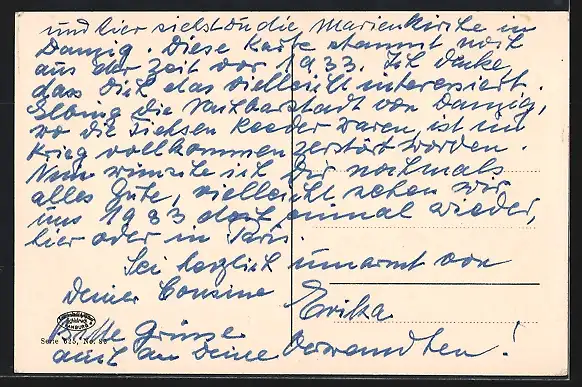 und hier siehst Du die Marienkirche in
Danzig. Diese Karte stammt noch
aus der Zeit vor 1933. Ich denke,
dass Dich das vielleicht interessiert.
Elbing die Nachbarstadt von Danzig,
wo die Ziehsen Reeder waren, ist im
Krieg vollkommen zerstört worden.
Nun wünsche ich Dir nochmals
alles Gute, vielleicht sehen wir
uns 1983 doch einmal wieder,
hier oder in Paris.
Sei herzlich umarmt von
Deiner Cousine Erika
HAMBURG
Bitte Grüsse
Serie 625, No. 82
auch an Deine Verwandten!